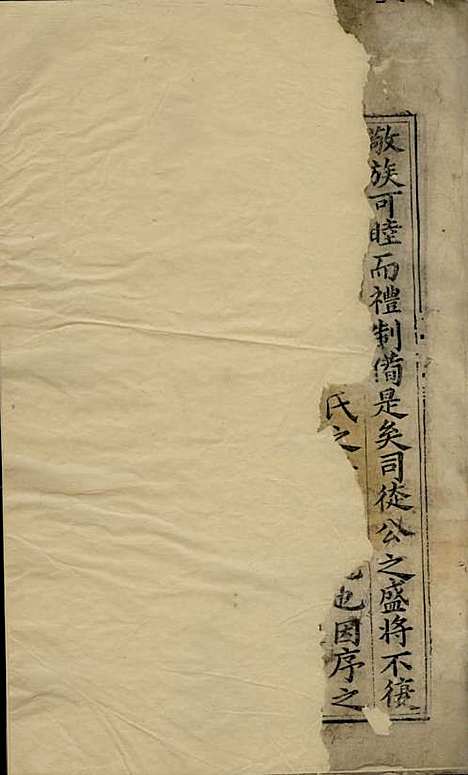 敬族可睦而禮制備是矣司徒公之盛將不
氏之
也因序之